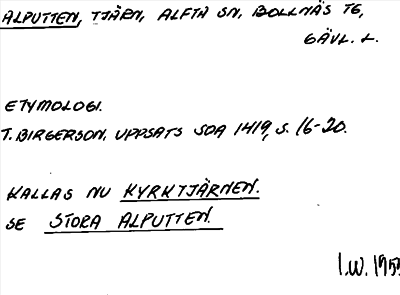 ALPUTTEN, TJÄRN, ALFTA SN, BOLLNÄS TG,
GÄVL. L.
ETYMOLOGI.
T. BIRGERSON, UPPSATS SOA 1419, S. 16-20.
KALLAS NU KYRKTJÄRNEN.
SE STORA ALPUTTEN.
I.W. 1955